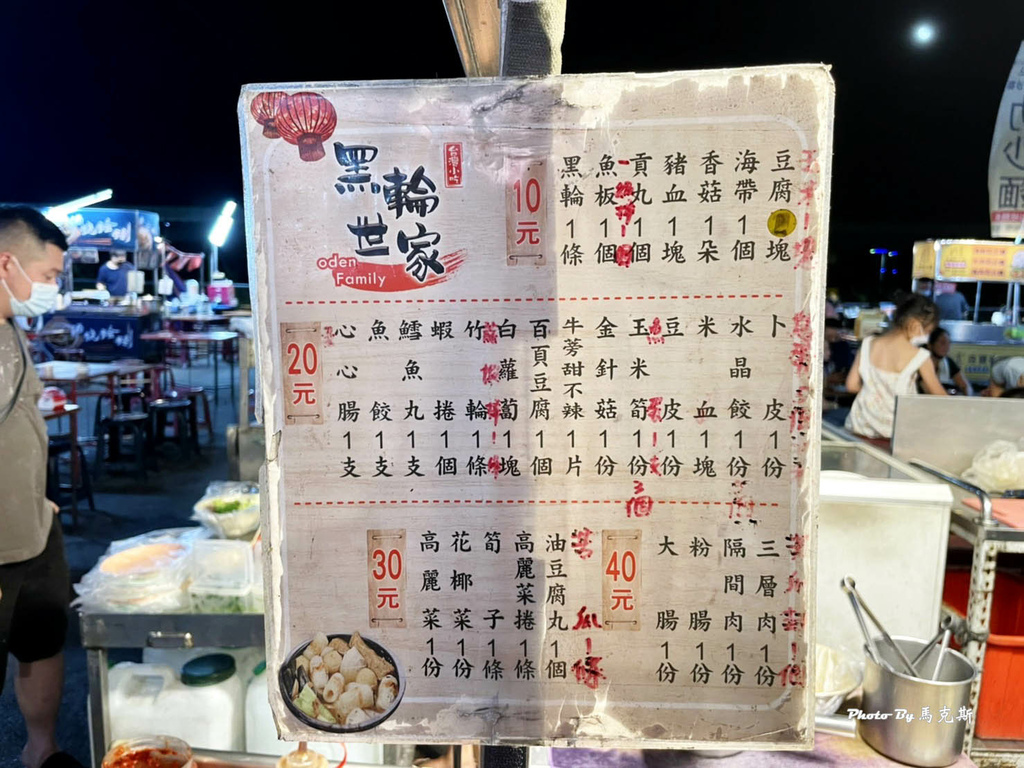 黑輪世家
台灣小吃
oden
Family
10元
豆腐2塊
海帶1個
香菇1朵
豬血1塊
貢丸1個
魚板1個
黑輪1條
20元
卜皮1份
水晶餃1份
米血1塊
豆皮1份
玉米筍1份
3個
金針菇1份
牛蒡甜不辣1片
百頁豆腐1個
白蘿蔔1塊
竹輪1條
蝦捲1個
鱈魚丸1支
魚餃1支
心心腸1支
40元
三層肉1份
隔間肉1份
粉腸1份
大腸1份
30元
苦瓜1條
油豆腐丸1個
高麗菜捲1條
筍子1條
花椰菜1份
高麗菜1份
Photo By 馬克斯